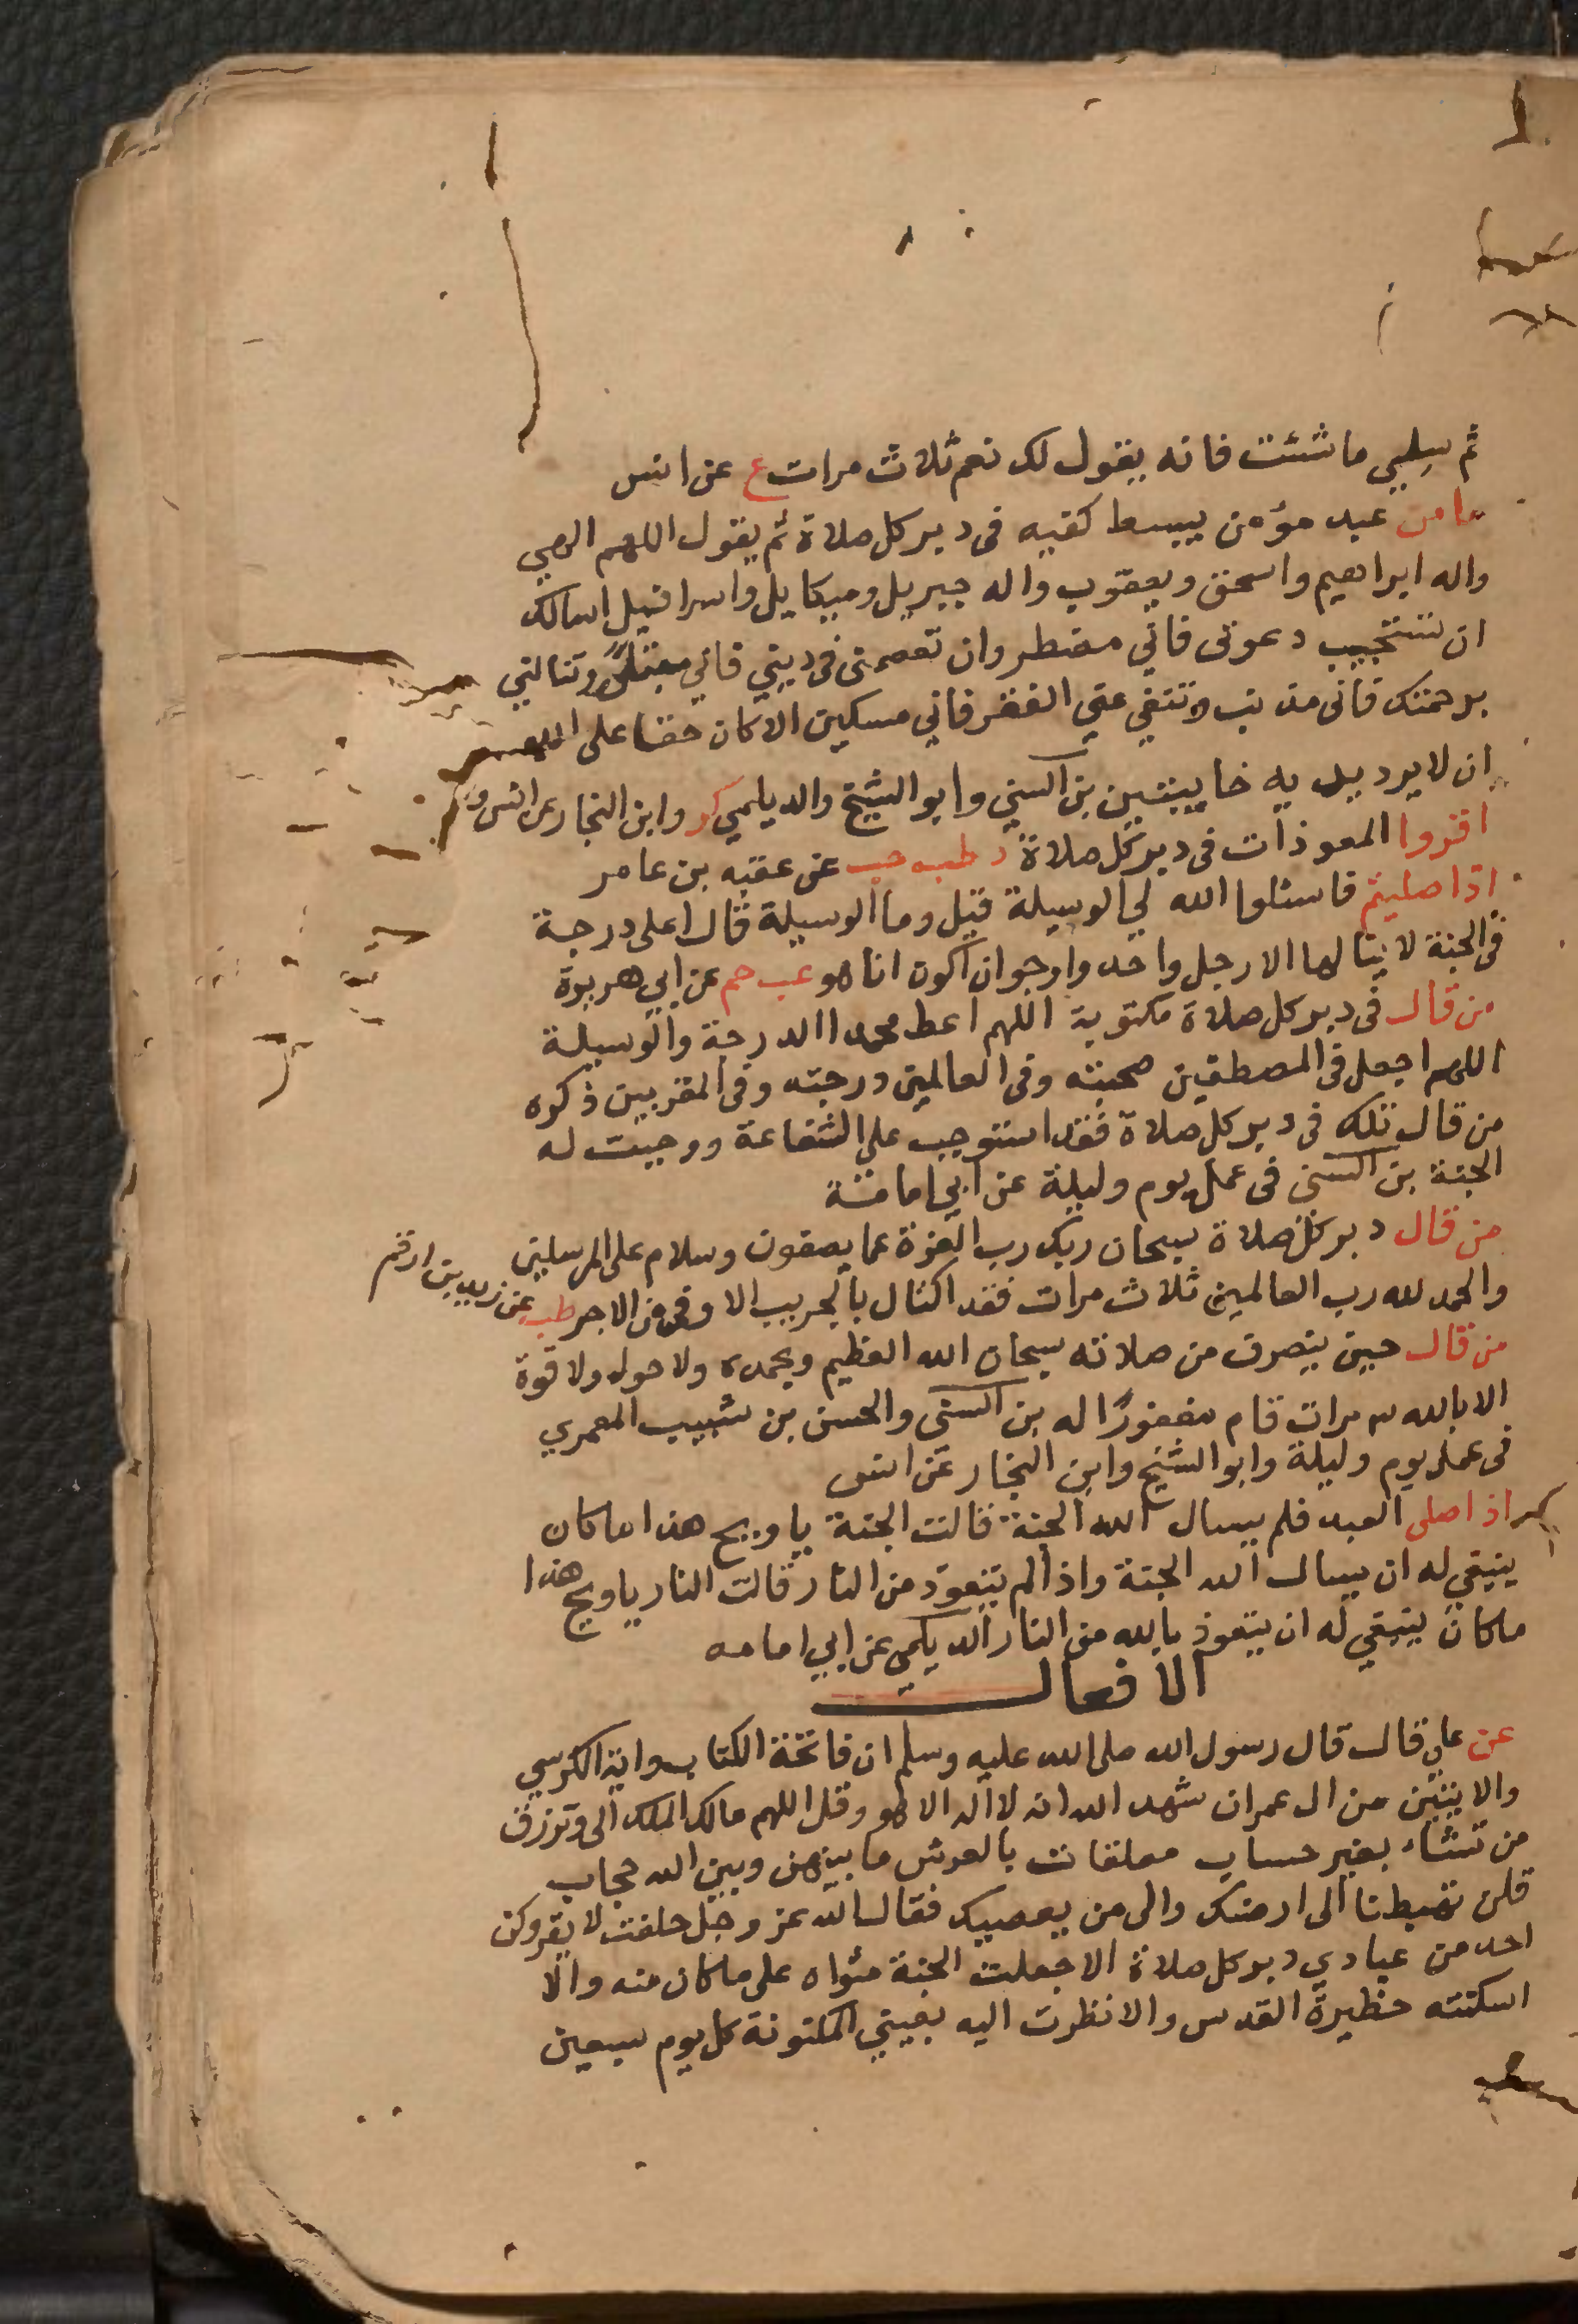 ثم سلي ما شئت فانه يقول لك نعم ثلاث مرات ع عن انس
ما من عبد مؤمن يبسط كفيه فى دبر كل صلاة ثم يقول اللهم الهي
واله ابراهيم واسحق ويعقوب واله جبريل وميكايل واسرافيل اسالك
ان تستجيب دعوتى فاني مضطر وان تعصمنى فى ديني فاني مبتلى وتنالني
برحمتك فانى مذنب وتنفي عني الفقر فاني مسكين الا كان حقا على الله
ان لا يرد يديه خايبتين بن السني وابو الشيخ والديلمي كر وابن النجار عن انس
اقروا المعوذات فى دبر كل صلاة د طب حب عن عقبه بن عامر
اذا صليتم فاسئلوا الله لي الوسيلة قيل وما الوسيلة قال اعلى درجة
فى الجنة لا ينالها الا رجل واحد وارجوا ان اكون انا هو عب حم عن ابي هريرة
من قال فى دبر كل صلاة مكتوبة اللهم اعط محمدا الدرجة والوسيلة
اللهم اجعل فى المصطفين صحبته وفى العالمين درجته وفى المقربين ذكره
من قال تلك فى دبر كل صلاة فقد استوجب علي الشفاعة ووجبت له
الجنة بن السنى فى عمل يوم وليلة عن ابي امامة
من قال دبر كل صلاة سبحان ربك رب العزة عما يصفون وسلام على المرسلين
والحمد لله رب العالمين ثلاث مرات فقد اكتال بالجريب الاوفى من الاجر طب عن زيد بن ارقم
من قال حين ينصرف من صلاته سبحان الله العظيم وبحمده ولا حول ولا قوة
الا بالله ٣ مرات قام مغفورًا له بن السنى والحسن بن شبيب المعمري
فى عمل يوم وليلة وابو الشيخ وابن النجار عن انس
اذا صلى العبد فلم يسال الله الجنة قالت الجنة يا ويح هذا اما كان
ينبغي له ان يسال الله الجنة واذا لم يتعوذ من النار قالت النار يا ويح هذا
ما كان ينبغي له ان يتعوذ بالله من النار الديلمي عن ابي امامه
الافعال
عن علي قال قال رسول الله صلى الله عليه وسلم ان فاتحة الكتاب واية الكرسي
والايتين من ال عمران شهد الله انه لا اله الا هو وقل اللهم مالك الملك الى وترزق
من تشاء بغير حساب معلقات بالعرش ما بينهن وبين الله حجاب
قلن تهبطنا الى ارضك والى من يعصيك فقال الله عز وجل حلفت لا يقروكن
احد من عبادي دبر كل صلاة الا جعلت الجنة مثواه على ما كان منه والا
اسكنته حظيرة القدس والا نظرت اليه بعيني المكنونة كل يوم سبعين